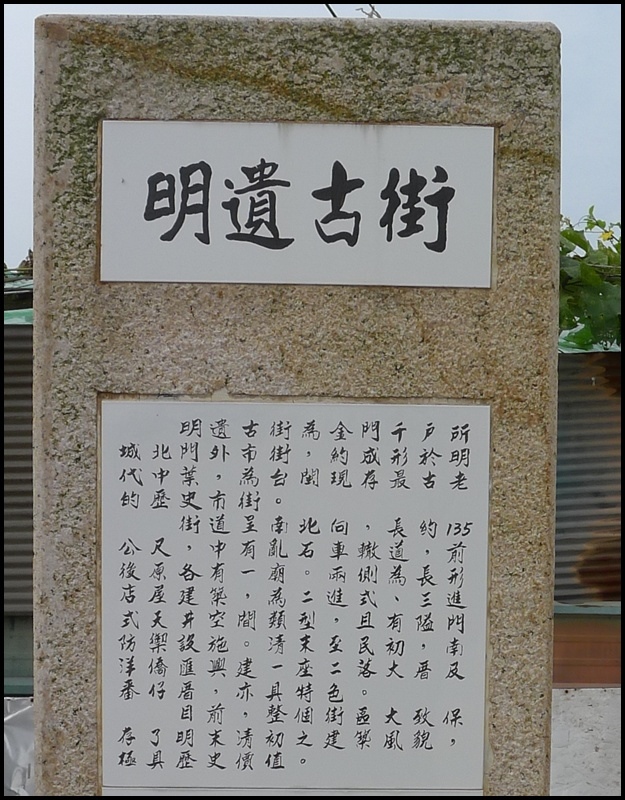 明遺古街
明遺古街為金門千戶所
城北門外市街,約成形於明
代中葉,為台閩現存最古老
的歷史市街。
街道呈南北向,長約135
公尺,中有亂石車轍道,前
後原各有一廟。兩側為長形
店屋建築,為二進式、三進
式天井空間類型,且有隘門
防禦設施。清末至民初南
洋僑匯興建一座二落大厝及
番仔厝,亦具特色。
目前,整個街區大致保
存了明末清初之建築風貌,
極具歷史價值。